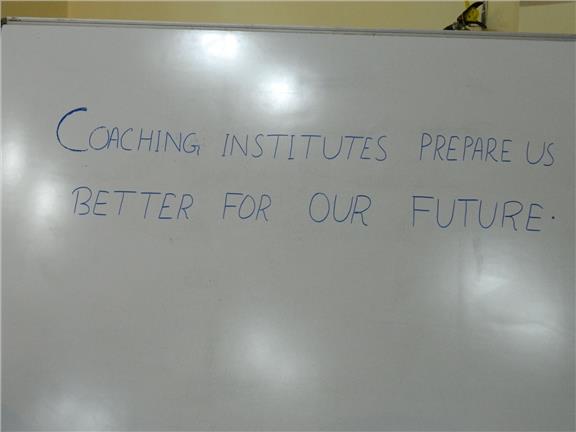 COACHING INSTITUTES PREPARE US
BETTER FOR OUR FUTURE.